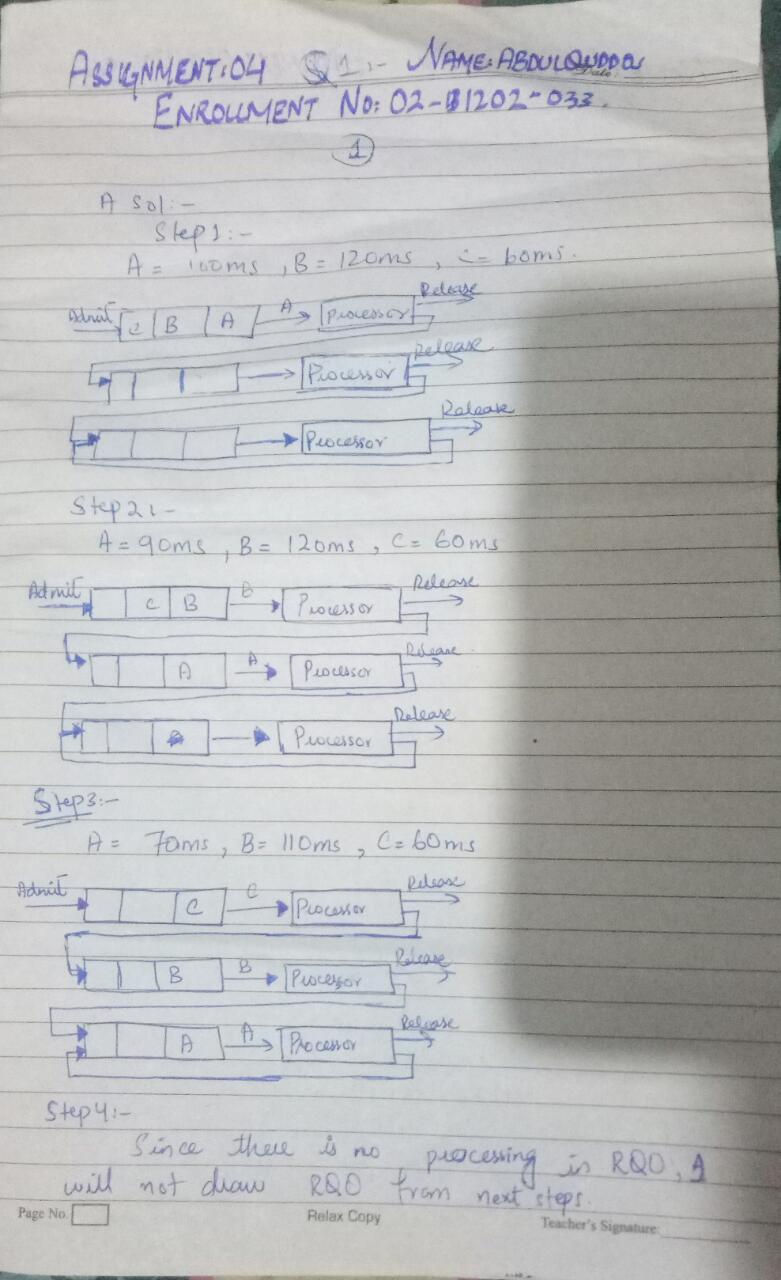 ASSIGNMENT:04 Q1:- NAME: ABDULQUDDOU
Date:
ENROLLMENT No: 02-131202-033.
1
A Sol:-
Step1:-
A = 100ms , B = 120ms , C = 60ms.
Admit C B A A Processor Release
Processor Release
Processor Release
Step2:-
A = 90ms , B = 120ms , C = 60ms
Admit C B B Processor Release
A A Processor Release
Processor Release
Step3:-
A = 70ms , B = 110ms , C = 60ms
Admit C C Processor Release
B B Processor Release
A A Processor Release
Step4:-
Since there is no processing in RQ0, I
will not draw RQ0 from next steps.
Page No. Relax Copy Teacher's Signature: